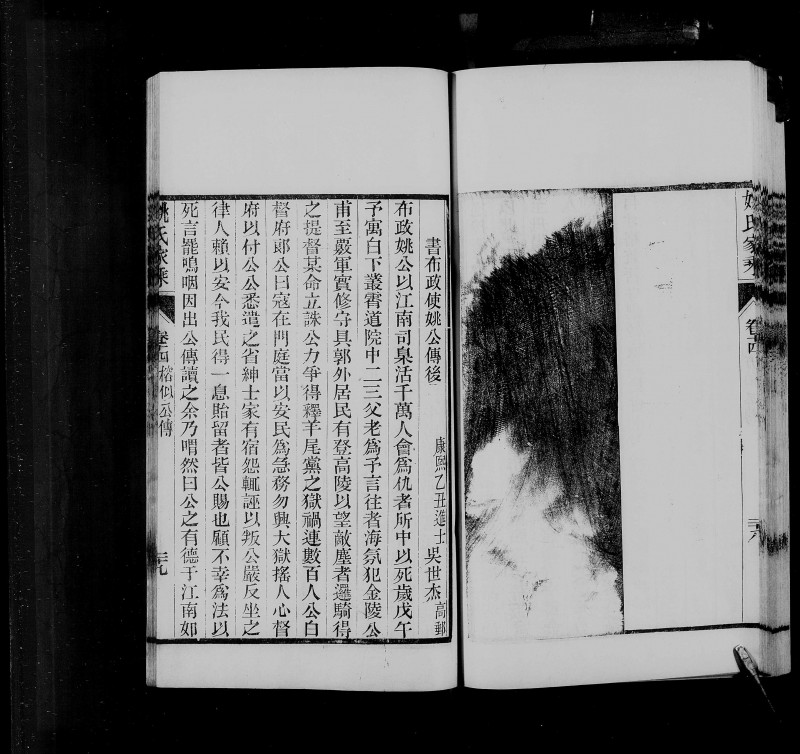 姚氏家乘
卷十四
三十八
書布政使姚公傳後
康熙乙丑進士 吳世杰 高郵
布政姚公以江南司臬活千萬人會爲仇者所中以死歲戊午
予寓白下叢霄道院中二三父老爲予言往者海氛犯金陵公
甫至嚴軍實修守具郭外居民有登高陵以望敵塵者邏騎得
之提督某命立誅公力爭得釋羊尾黨之獄禍連數百人公白
督府郎公曰寇在門庭當以安民爲急務勿興大獄搖人心督
府以付公公悉遣之省紳士家有宿怨輒誣以叛公嚴反坐之
律人賴以安今我民得一息貽留者皆公賜也顧不幸爲法以
死言罷嗚咽因出公傳讀之余乃喟然曰公之有德于江南如
姚氏家乘
卷十四 榕似公傳
三十九